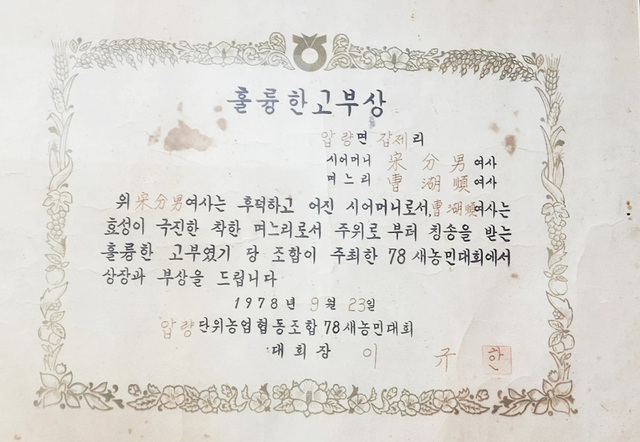 훌륭한고부상
압량면 갑제리
시어머니 宋分男 여사
며느리 曺湖順 여사
위 宋分男여사는 후덕하고 어진 시어머니로서, 曺湖順여사는
효성이 극진한 착한 며느리로서 주위로 부터 칭송을 받는
훌륭한 고부였기 당 조합이 주최한 78 새농민대회에서
상장과 부상을 드립니다
1978년 9월 23일
압량단위농업협동조합 78새농민대회
대회장 이규한